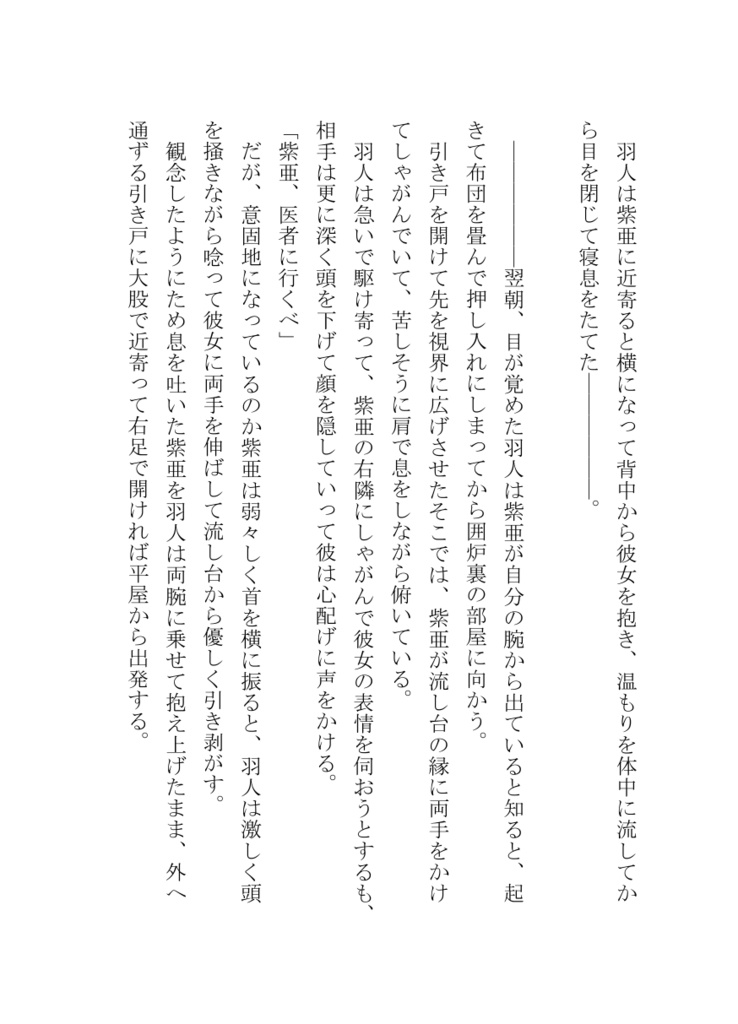 羽人は紫亜に近寄ると横になって背中から彼女を抱き、温もりを体中に流してか
ら目を閉じて寝息をたてた――――――。
　――――――翌朝、目が覚めた羽人は紫亜が自分の腕から出ていると知ると、起
きて布団を畳んで押し入れにしまってから囲炉裏の部屋に向かう。
　引き戸を開けて先を視界に広げさせたそこでは、紫亜が流し台の縁に両手をかけ
てしゃがんでいて、苦しそうに肩で息をしながら俯いている。
　羽人は急いで駆け寄って、紫亜の右隣にしゃがんで彼女の表情を伺おうとするも、
相手は更に深く頭を下げて顔を隠していって彼は心配げに声をかける。
「紫亜、医者に行くべ」
　だが、意固地になっているのか紫亜は弱々しく首を横に振ると、羽人は激しく頭
を掻きながら唸って彼女に両手を伸ばして流し台から優しく引き剥がす。
　観念したようにため息を吐いた紫亜を羽人は両腕に乗せて抱え上げたまま、外へ
通ずる引き戸に大股で近寄って右足で開ければ平屋から出発する。